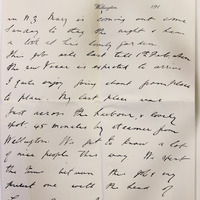 Wellington 191
in N.Z. Mary is coming out some
Sunday to stay the night & have
a look at this lovely garden
This job ends
the new Nurse is expected to arrive
I quite enjoy going about from place
to place. My last place was
just across the harbour, a lovely
spot 45 minutes by steamer from
Wellington. We got to know a lot
of nice people this way. We spent
the time between the last my
present one with the head of